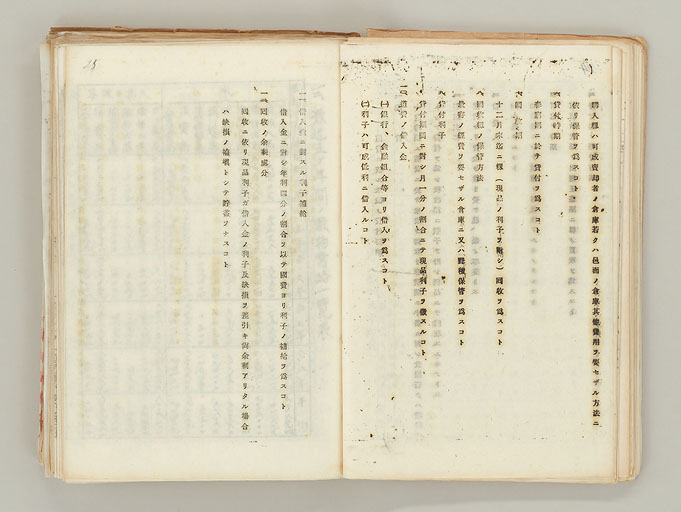 購入糧ハ可成賣却者ノ倉庫若クハ邑面ノ倉庫其他費用ヲ要セザル方法ニ
依リ保管ヲ爲スコト
貸付時期
春窮期ニ於テ貸付ヲ爲スコト
回收期
十二月末迄ニ糧(現品ノ利子ヲ附シ)回收ヲ爲スコト
回收糧ノ保管方法
最寄ノ經費ヲ要セザル倉庫ニ又ハ野積保管ヲ爲スコト
貸付利子
貸付期間ニ對シ月一分ノ割合ニテ現品利子ヲ徵スルコト
資金ノ借入金
㈠銀行、金融組合等ヨリ借入ヲ爲スコト
㈡利子ハ可成低利ニ借入ルコト
25
一、借入金ニ對スル利子補給
借入金ニ對シ年利四分ノ割合ヲ以テ國費ヨリ利子ノ補給ヲ爲スコト
一、回收ノ余剩處分
回收ニ依リ現品利子ガ借入金ノ利子及缺損ヲ差引キ尙余剩アリタル場合
ハ缺損ノ補塡トシテ貯蓄ヲナスコト